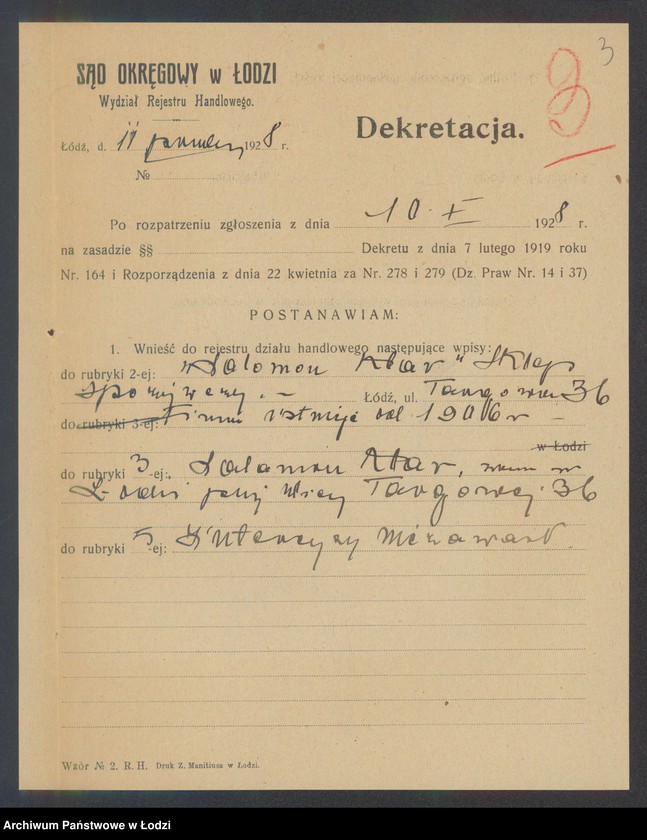 3
8
SĄD OKRĘGOWY w ŁODZI
Wydział Rejestru Handlowego.
Łódź, d. 11 1928 r.
№
Dekretacja.
Po rozpatrzeniu zgłoszenia z dnia 10 X 1928 r.
na zasadzie §§ Dekretu z dnia 7 lutego 1919 roku
Nr. 164 i Rozporządzenia z dnia 22 kwietnia za Nr. 278 i 279 (Dz. Praw Nr. 14 i 37)
POSTANAWIAM:
1. Wnieść do rejestru działu handlowego następujące wpisy:
do rubryki 2-ej: "Salomon Kłar" Sklep
spożywczy. — Łódź, ul. Targowa 36
do rubryki 3-ej: Firma istnieje od 1906 r —
w Łodzi
do rubryki 3-ej: Salamon Kłar, zam w
Łodzi przy ulicy Targowej 36
do rubryki 5-ej: Intercyzy nie zawarł.
Wzór № 2. R. H. Druk Z. Manitiusa w Łodzi.
Archiwum Państwowe w Łodzi